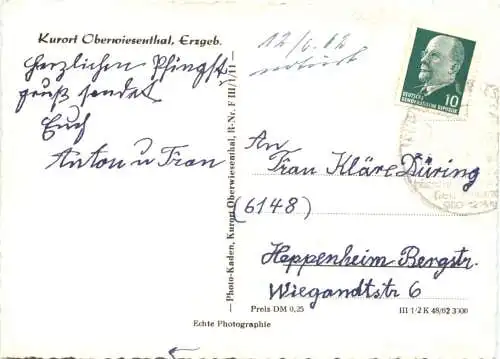 Kurort Oberwiesenthal, Erzgeb.
Herzlichen Pfingst
gruß sendet
Euch
Anton u Frau
12/6.62
— Photo-Kaden, Kurort Oberwiesenthal, R-Nr. F III/1/11 —
DEUTSCHE
DEMOKRATISCHE REPUBLIK
10
An
Frau Kläre Düring
(6148)
Heppenheim Bergstr.
Wiegandtstr 6
Preis DM 0,25
III 1/2 K 48/62 3300
Echte Photographie